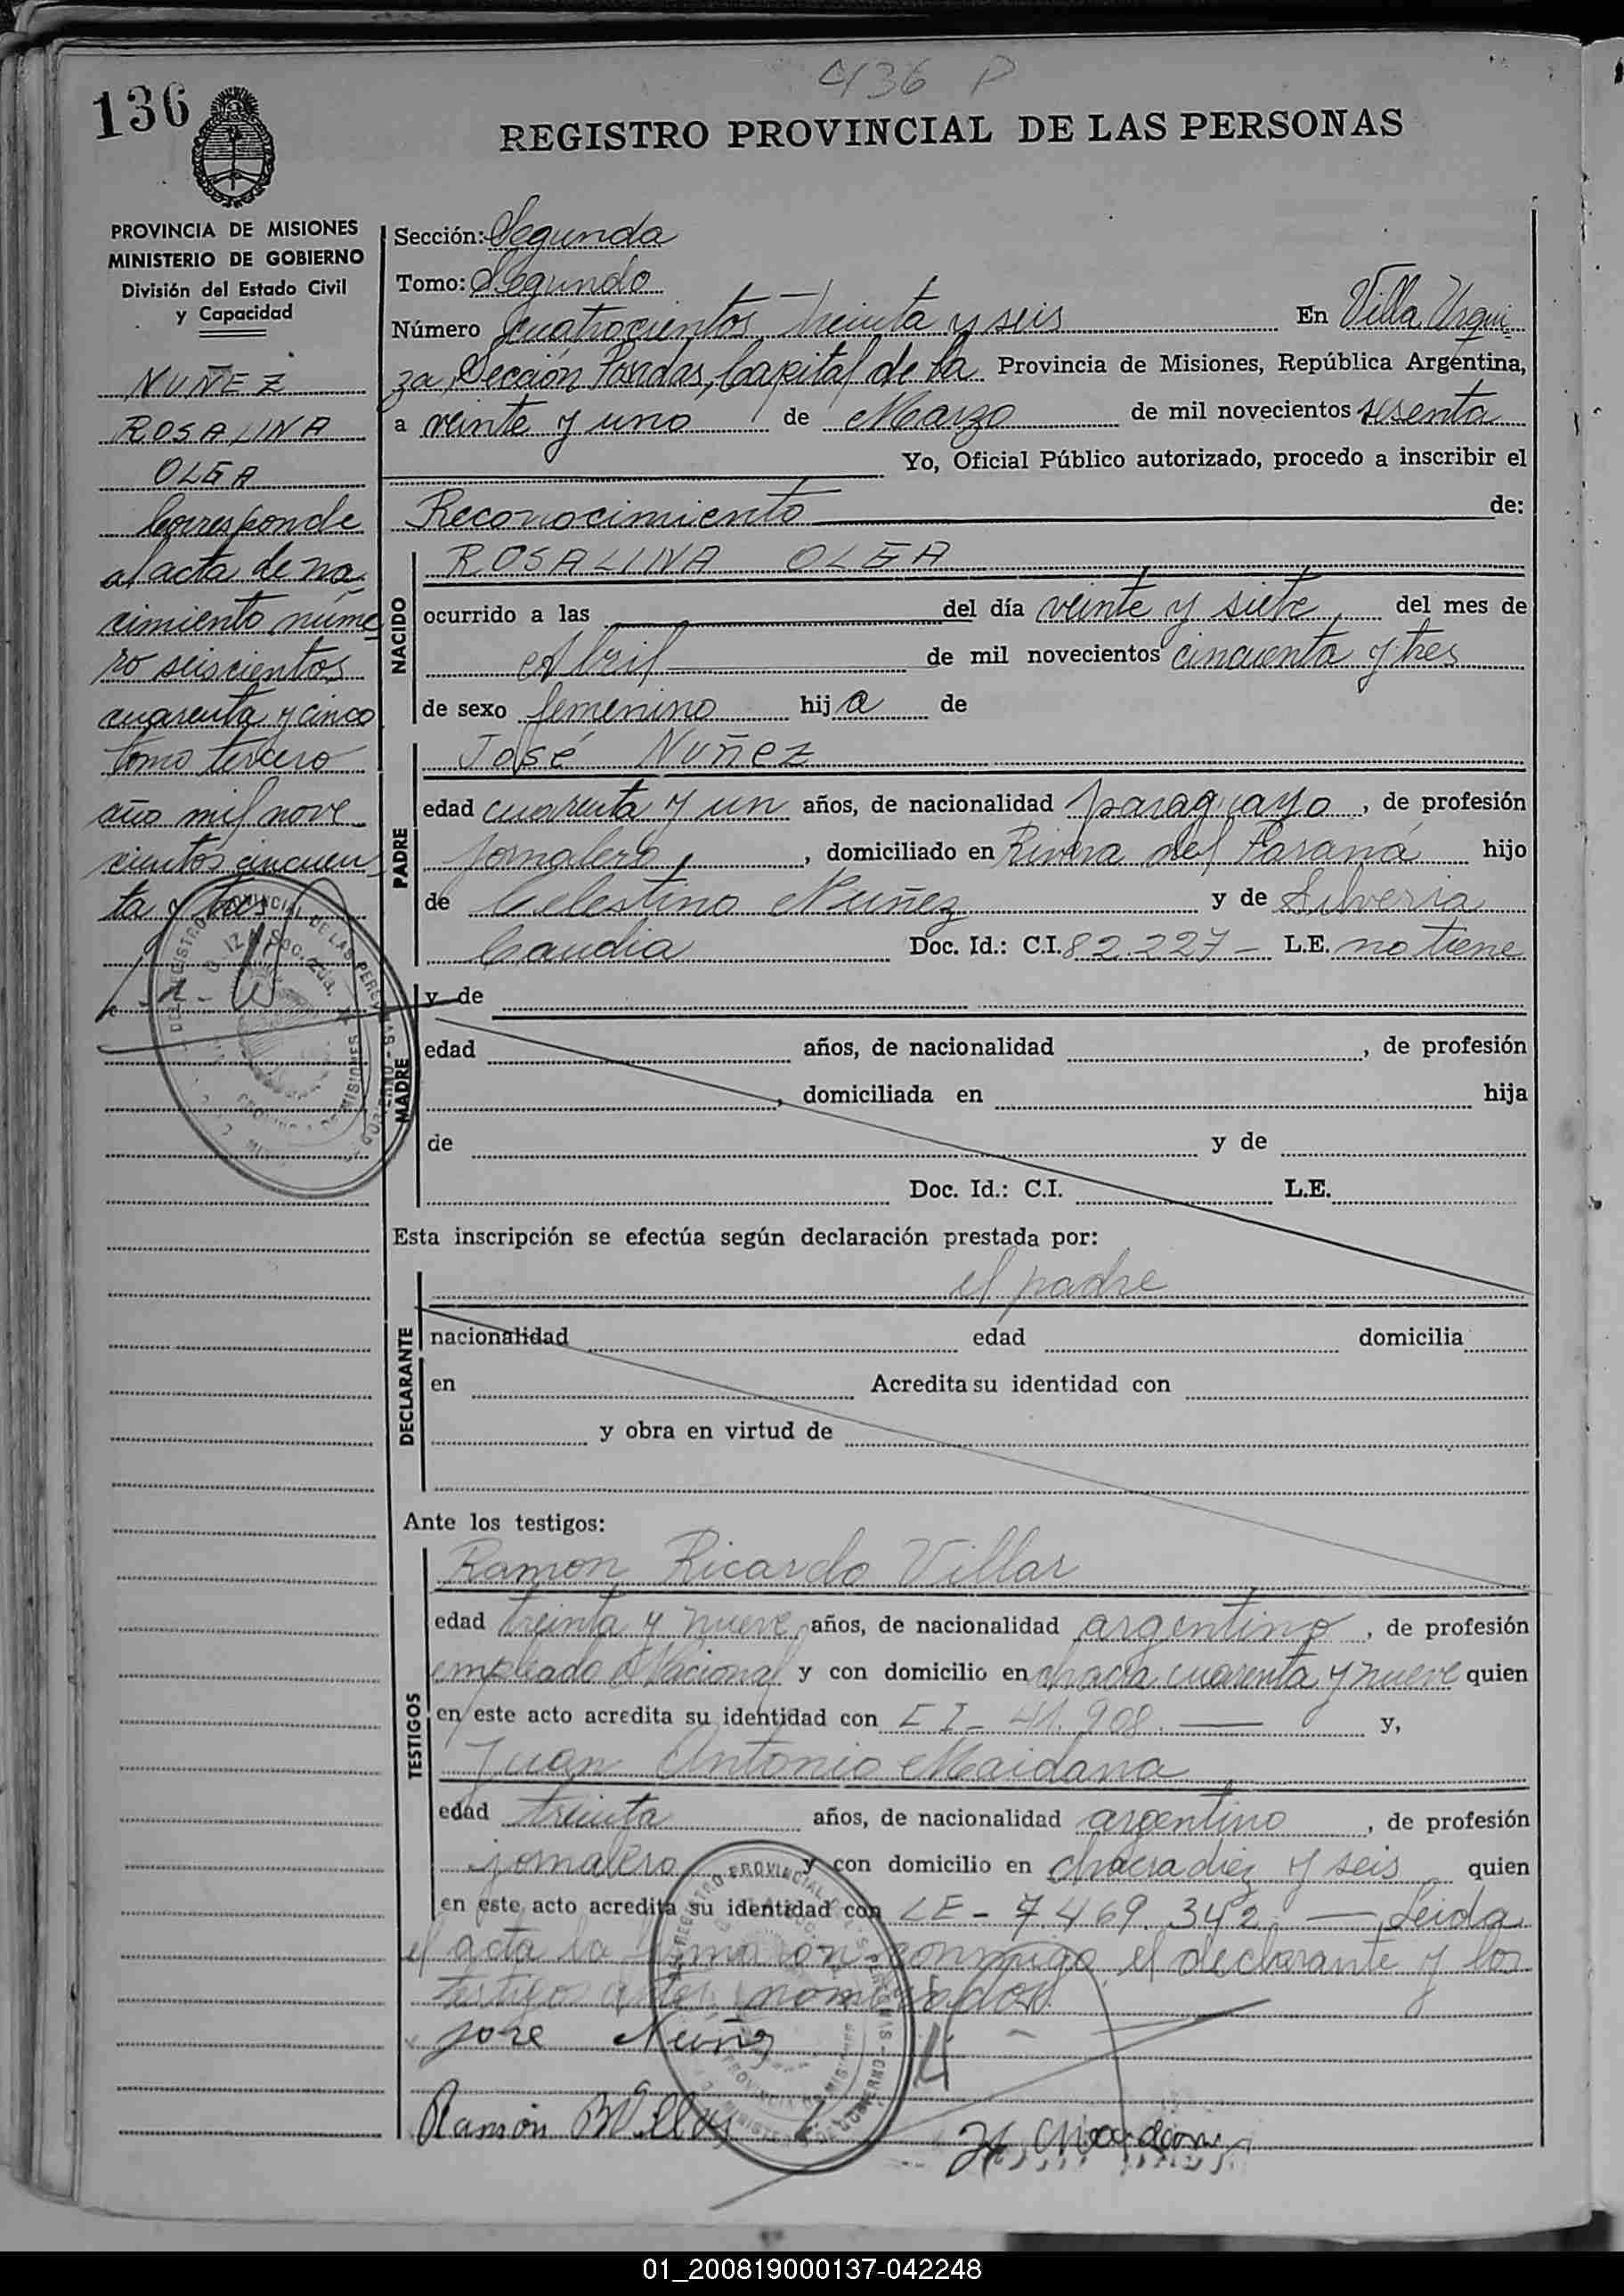 436 P
136
REGISTRO PROVINCIAL DE LAS PERSONAS
PROVINCIA DE MISIONES
MINISTERIO DE GOBIERNO
División del Estado Civil
y Capacidad
NUÑEZ
ROSALINA
OLGA
Corresponde
al acta de na
cimiento núme
ro seiscientos
cuarenta y cinco
tomo tercero
año mil nove
cientos cincuen
ta y tres
Sección: Segunda
Tomo: Segundo
Número cuatrocientos treinta y seis En Villa Urqui
za, Sección Posadas, Capital de la Provincia de Misiones, República Argentina,
a veinte y uno de Marzo de mil novecientos sesenta
Yo, Oficial Público autorizado, procedo a inscribir el
Reconocimiento de:
NACIDO
ROSALINA OLGA
ocurrido a las del día veinte y siete del mes de
Abril de mil novecientos cincuenta y tres
de sexo femenino hija de
PADRE
José Nuñez
edad cuarenta y un años, de nacionalidad paraguayo, de profesión
jornalero, domiciliado en Rivera del Paraná hijo
de Celestino Nuñez y de Silveria
Candia Doc. Id.: C.I. 82.227 - L.E. no tiene
MADRE
y de
edad años, de nacionalidad , de profesión
, domiciliada en hija
de y de
Doc. Id.: C.I. L.E.
Esta inscripción se efectúa según declaración prestada por:
DECLARANTE
el padre
nacionalidad edad domicilia
en Acredita su identidad con
y obra en virtud de
Ante los testigos:
TESTIGOS
Ramon Ricardo Villar
edad treinta y nueve años, de nacionalidad argentino, de profesión
empleado Nacional y con domicilio en chacra cuarenta y nueve quien
en este acto acredita su identidad con CI - 41.908. y,
Juan Antonio Maidana
edad treinta años, de nacionalidad argentino, de profesión
jornalero y con domicilio en chacra diez y seis quien
en este acto acredita su identidad con LE - 7.469.342. - Leida
el acta la firman conmigo el declarante y los
testigos antes nombrados
Jose Nuñez
Ramón R Villar
01_200819000137-042248